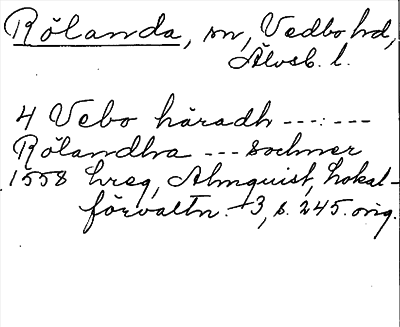 Rölanda, sn, Vedbo hd,
Älvsb. l.
4 Vebo häradh ---:---
Rölandha --- sochner
1558 hreg, Almquist, Lokal-
förvaltn. 3, s. 245. orig.